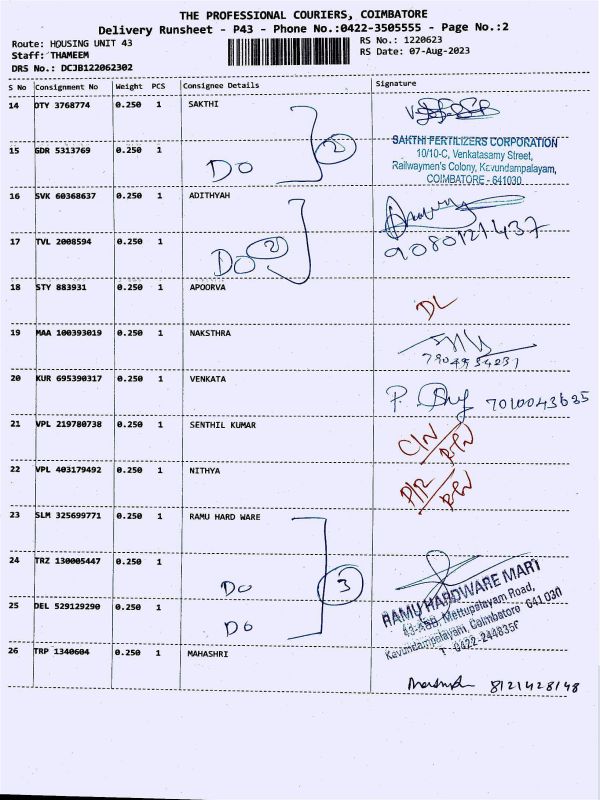 THE PROFESSIONAL COURIERS, COIMBATORE
Delivery Runsheet - P43 - Phone No.:0422-3505555 - Page No.:2
Route: HOUSING UNIT 43
RS No.: 1220623
Staff: THAMEEM
RS Date: 07-Aug-2023
DRS No.: DCJB122062302
S No Consignment No Weight PCS Consignee Details Signature
14 DTY 3768774 0.250 1 SAKTHI
2
15 GDR 5313769 0.250 1 DO
SAKTHI FERTILIZERS CORPORATION
10/10-C, Venkatasamy Street,
Railwaymen's Colony, Kavundampalayam,
COIMBATORE - 641030
16 SVK 60368637 0.250 1 ADITHYAH
17 TVL 2008594 0.250 1 DO 2
9080121437
18 STY 883931 0.250 1 APOORVA DL
19 MAA 100393019 0.250 1 NAKSTHRA
20 KUR 695390317 0.250 1 VENKATA 7010043635
21 VPL 219780738 0.250 1 SENTHIL KUMAR
22 VPL 403179492 0.250 1 NITHYA
23 SLM 325699771 0.250 1 RAMU HARD WARE
24 TRZ 130005447 0.250 1 DO 3
25 DEL 529129290 0.250 1 DO
RAMU HARDWARE MART
Mettupalayam Road,
Kavundampalayam, Coimbatore 641 030
26 TRP 1340604 0.250 1 MAHASHRI
8121428148